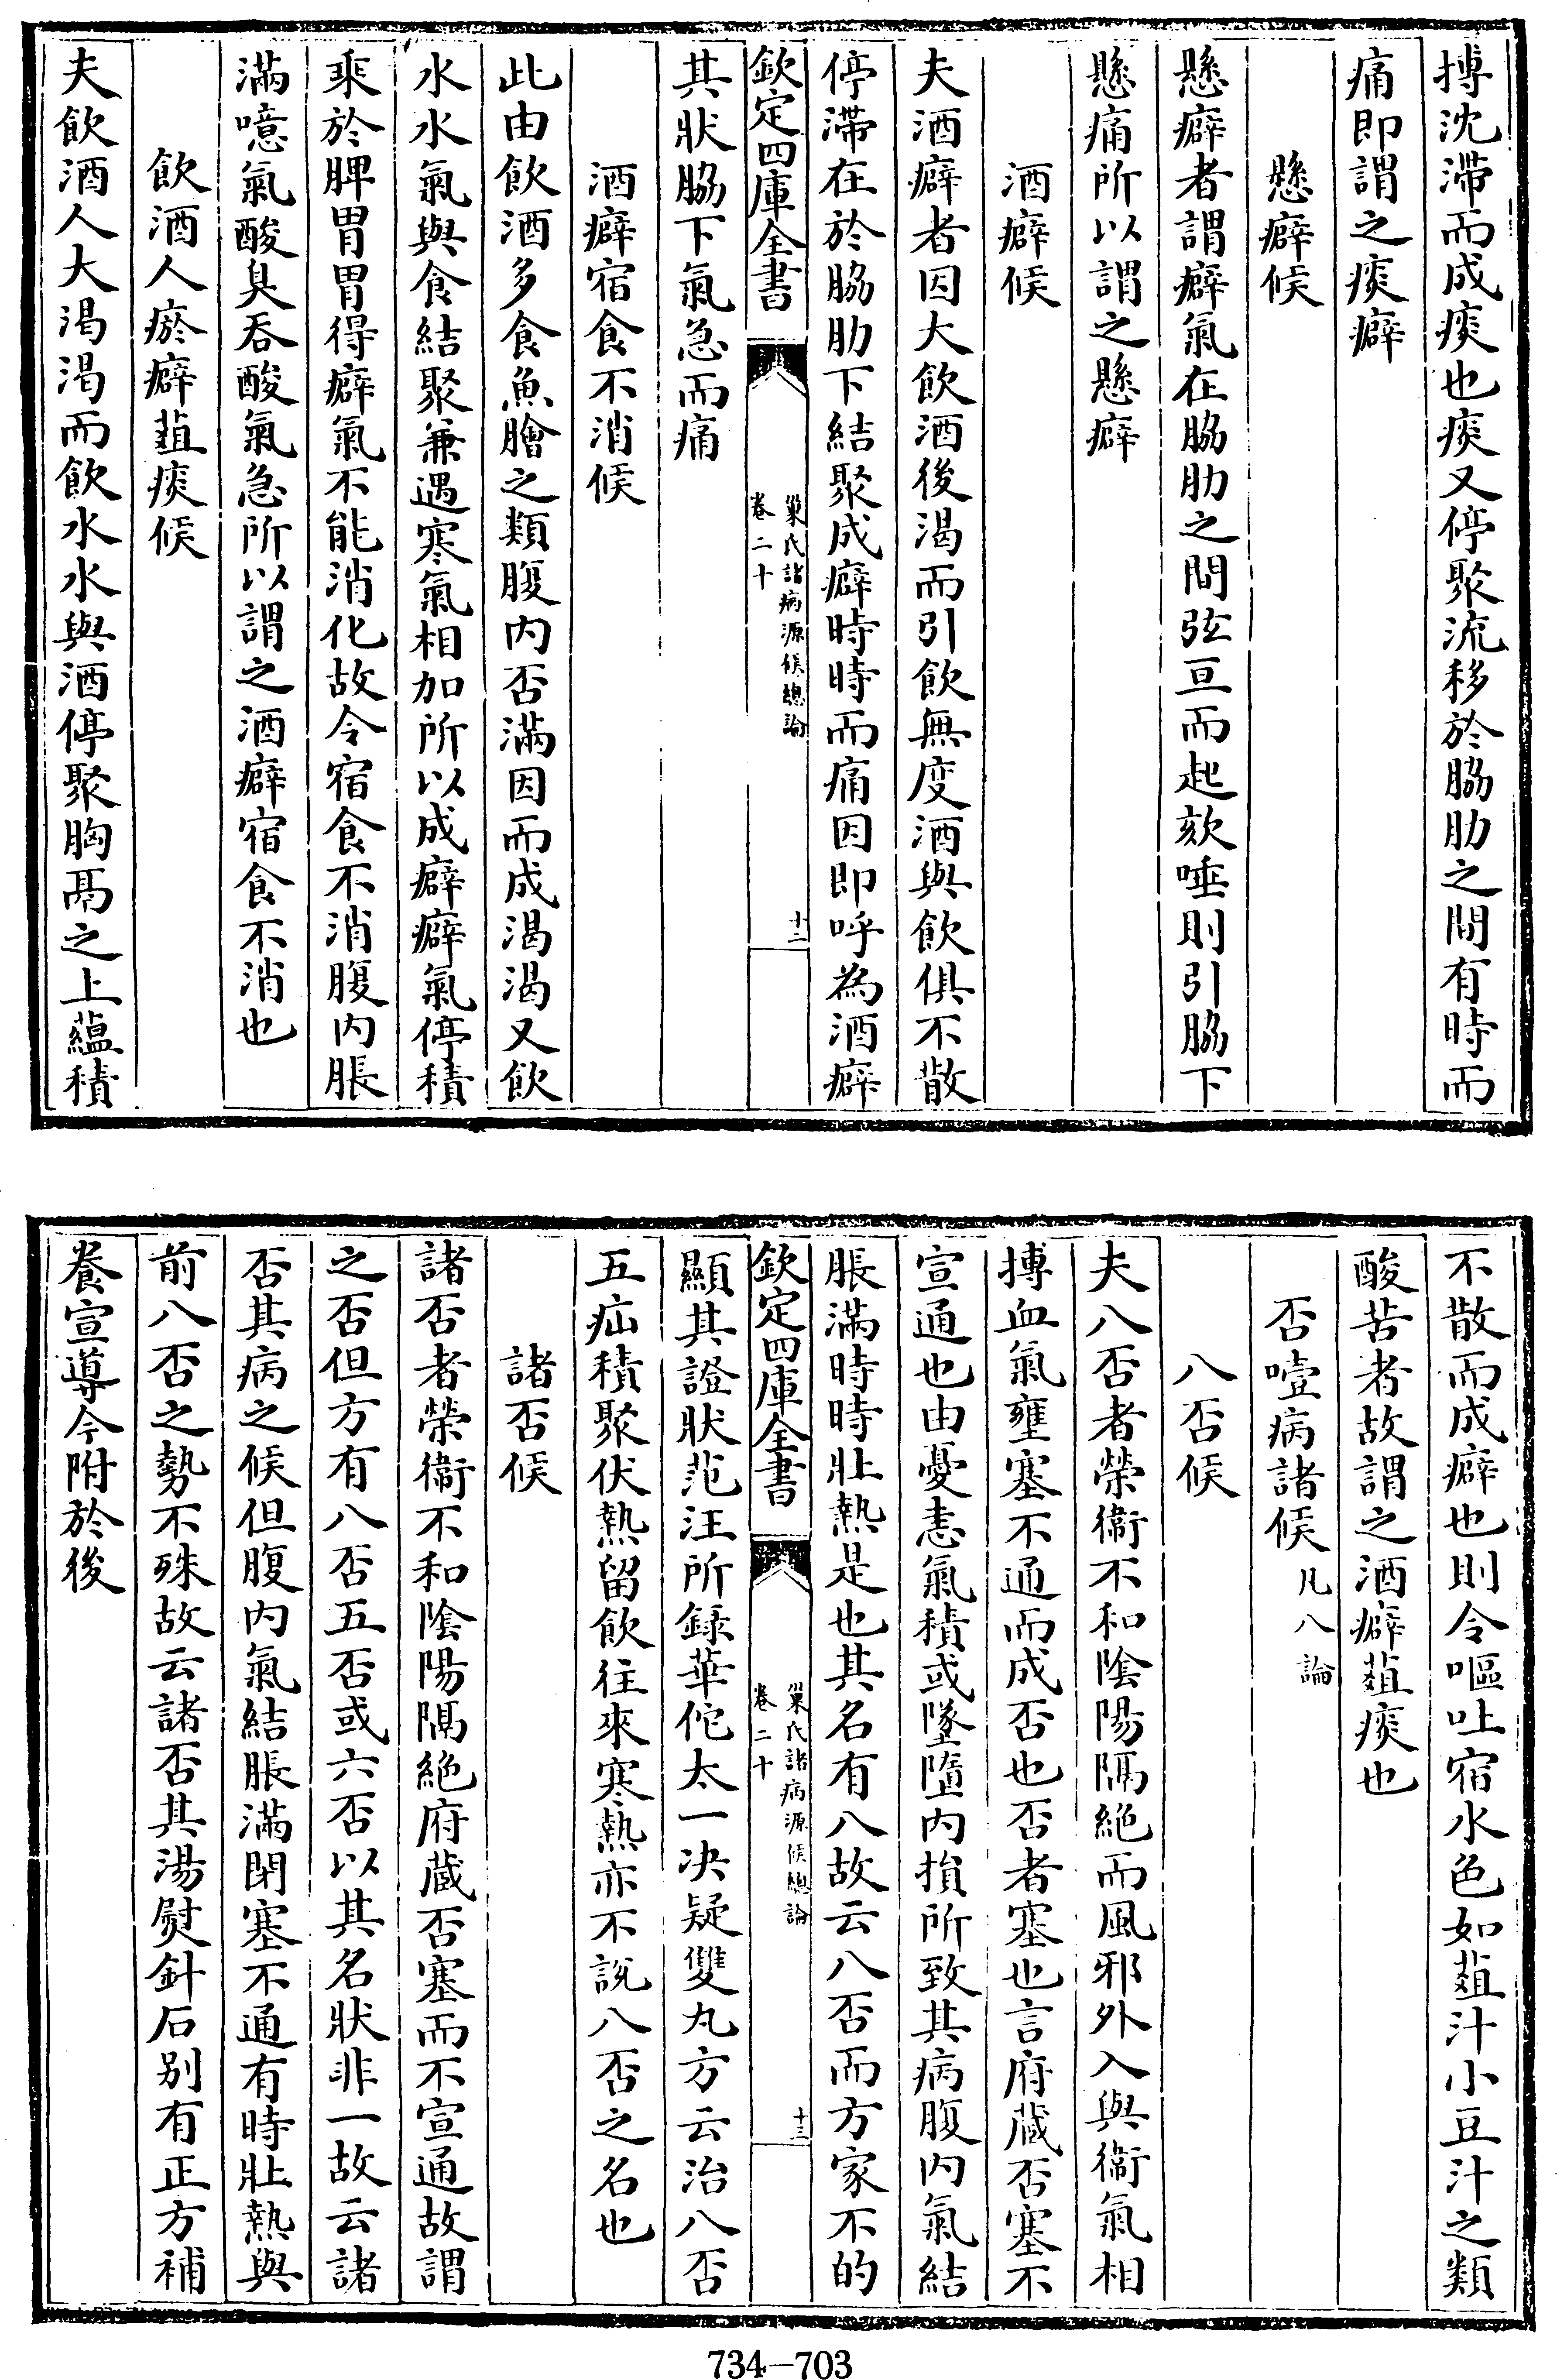 搏沈滯而成痰也痰又停聚流移於脇肋之間有時而
痛即謂之痰癖
懸癖候
懸癖者謂癖氣在脇肋之間弦亘而起欬唾則引脇下
懸痛所以謂之懸癖
酒癖候
夫酒癖者因大飲酒後渴而引飲無度酒與飲俱不散
停滯在於脇肋下結聚成癖時時而痛因即呼為酒癖
欽定四庫全書
巢氏諸病源候總論
卷二十
十二
其狀脇下氣急而痛
酒癖宿食不消候
此由飲酒多食魚膾之類腹内否滿因而成渴渴又飲
水水氣與食結聚兼遇寒氣相加所以成癖癖氣停積
乘於脾胃胃得癖氣不能消化故令宿食不消腹内脹
滿噫氣酸臭吞酸氣急所以謂之酒癖宿食不消也
飲酒人瘀癖菹痰候
夫飲酒人大渴渴而飲水水與酒停聚胸鬲之上蘊積
不散而成癖也則令嘔吐宿水色如菹汁小豆汁之類
酸苦者故謂之酒癖菹痰也
否噎病諸候凡八論
八否候
夫八否者榮衞不和陰陽隔絶而風邪外入與衞氣相
搏血氣壅塞不通而成否也否者塞也言府藏否塞不
宣通也由憂恚氣積或墜墮内損所致其病腹内氣結
脹滿時時壯熱是也其名有八故云八否而方家不的
欽定四庫全書
巢氏諸病源候總論
卷二十
十三
顯其證狀范汪所録華佗太一决疑雙丸方云治八否
五疝積聚伏熱留飲往來寒熱亦不說八否之名也
諸否候
諸否者榮衞不和陰陽隔絶府藏否塞而不宣通故謂
之否但方有八否五否或六否以其名狀非一故云諸
否其病之候但腹内氣結脹滿閉塞不通有時壯熱與
前八否之勢不殊故云諸否其湯熨針石别有正方補
養宣導今附於後
734—703